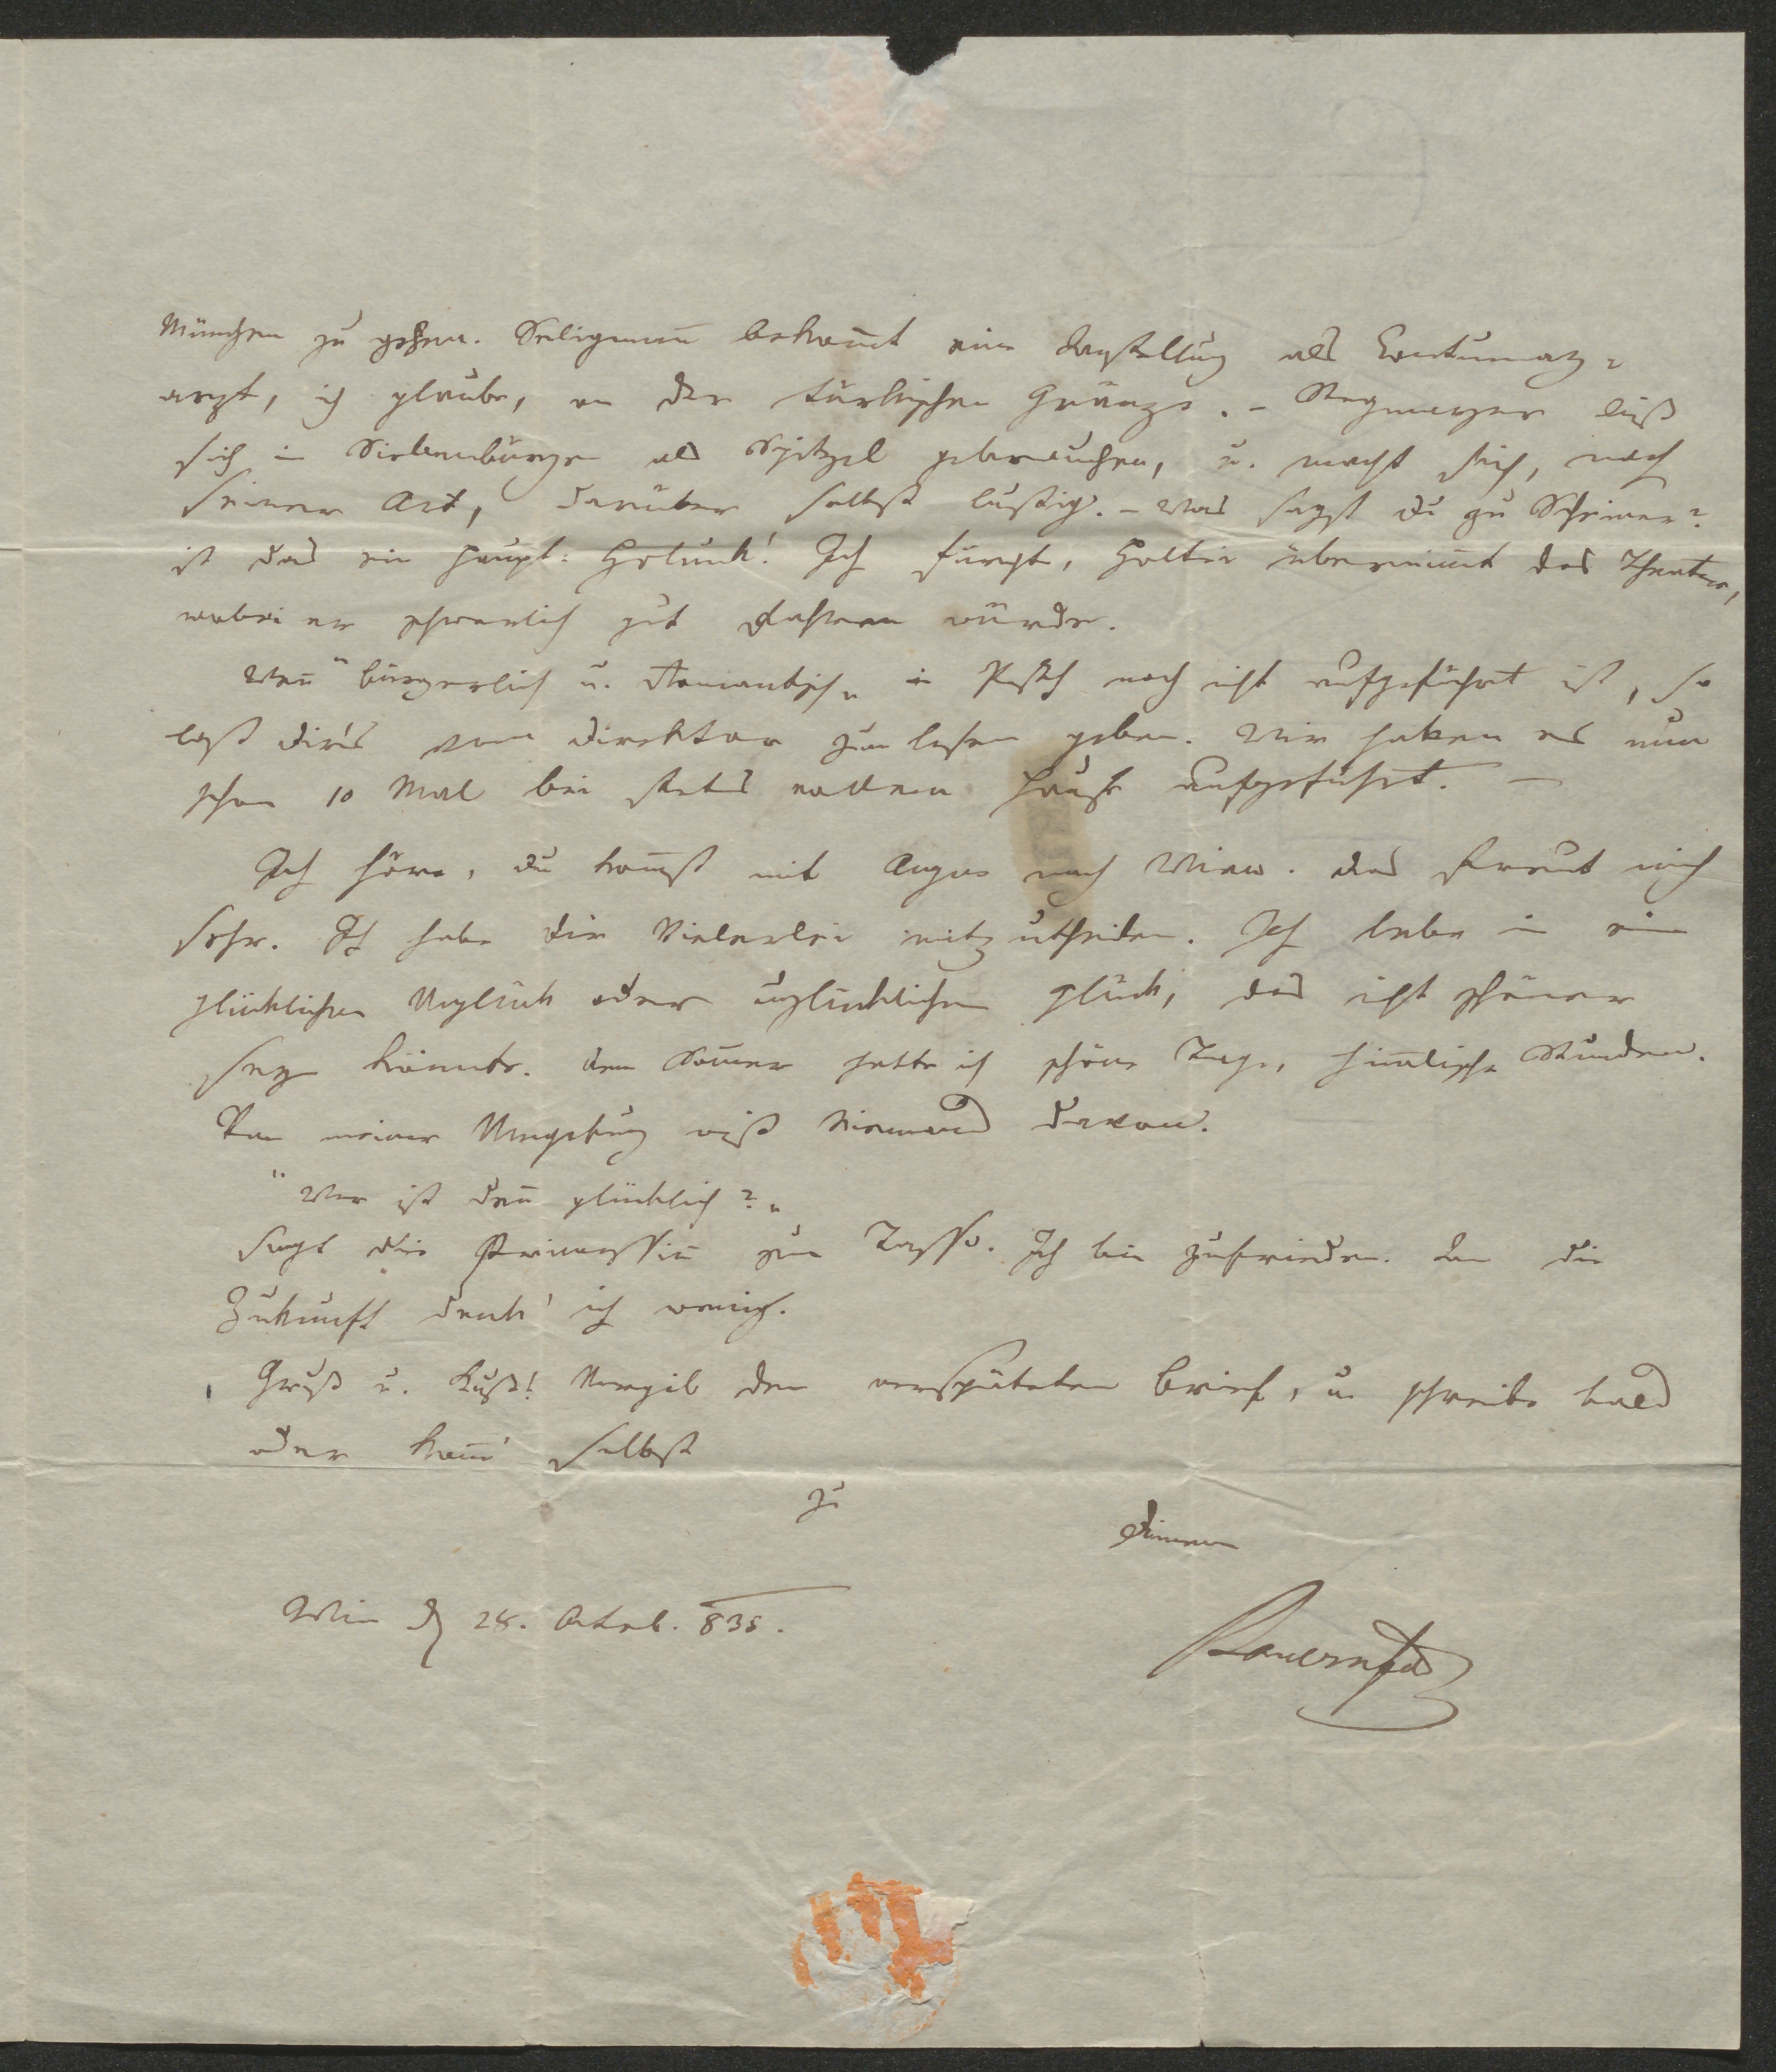 München zu gehen. Seligmañ bekom̄t eine Anstellung als Contumaz=
arzt, ich glaube, an der türkischen Gränze. – Stegmayer ließ
sich in Siebenbürgen als Spitzel gebrauchen, u. macht sich, nach
seiner Art, darüber selbst lustig. – Was sagst du zu Scheiner?
ist das ein Haupt=Halunk! Ich fürchte, Holtei übernim̄t das Theater,
wobei er schwerlich gut fahren würde.
Weñ "bürgerlich u. Romantisch" in Pesth noch nicht aufgeführt ist, so
laß dir's vom Direktor zum lesen geben. Wir haben es nun
schon 10 Mal bei stets vollem Hause aufgeführt. –
Ich höre, du kom̄st mit August nach Wien. das freut mich
sehr. Ich habe dir Vielerlei mitzutheilen. Ich lebe in eim
glücklichen Unglück oder unglücklichen Glück, das nicht schöner
seyn könnte. den Som̄er hatte ich schöne Tage, him̄lische Stunden.
Von meiner Umgebung weiß Niemand davon.
"Wer ist deñ glücklich?"
sagt die Prinzessiñ zum Tasso. Ich bin zufrieden. An die
Zukunft denk' ich wenig.
Gruß u. Kuß! Vergib den verspäteten Brief, u. schreibe bald
oder kom̄' selbst
zu
deinem
Wien d 28. Octob. 835.
Bauernfeld